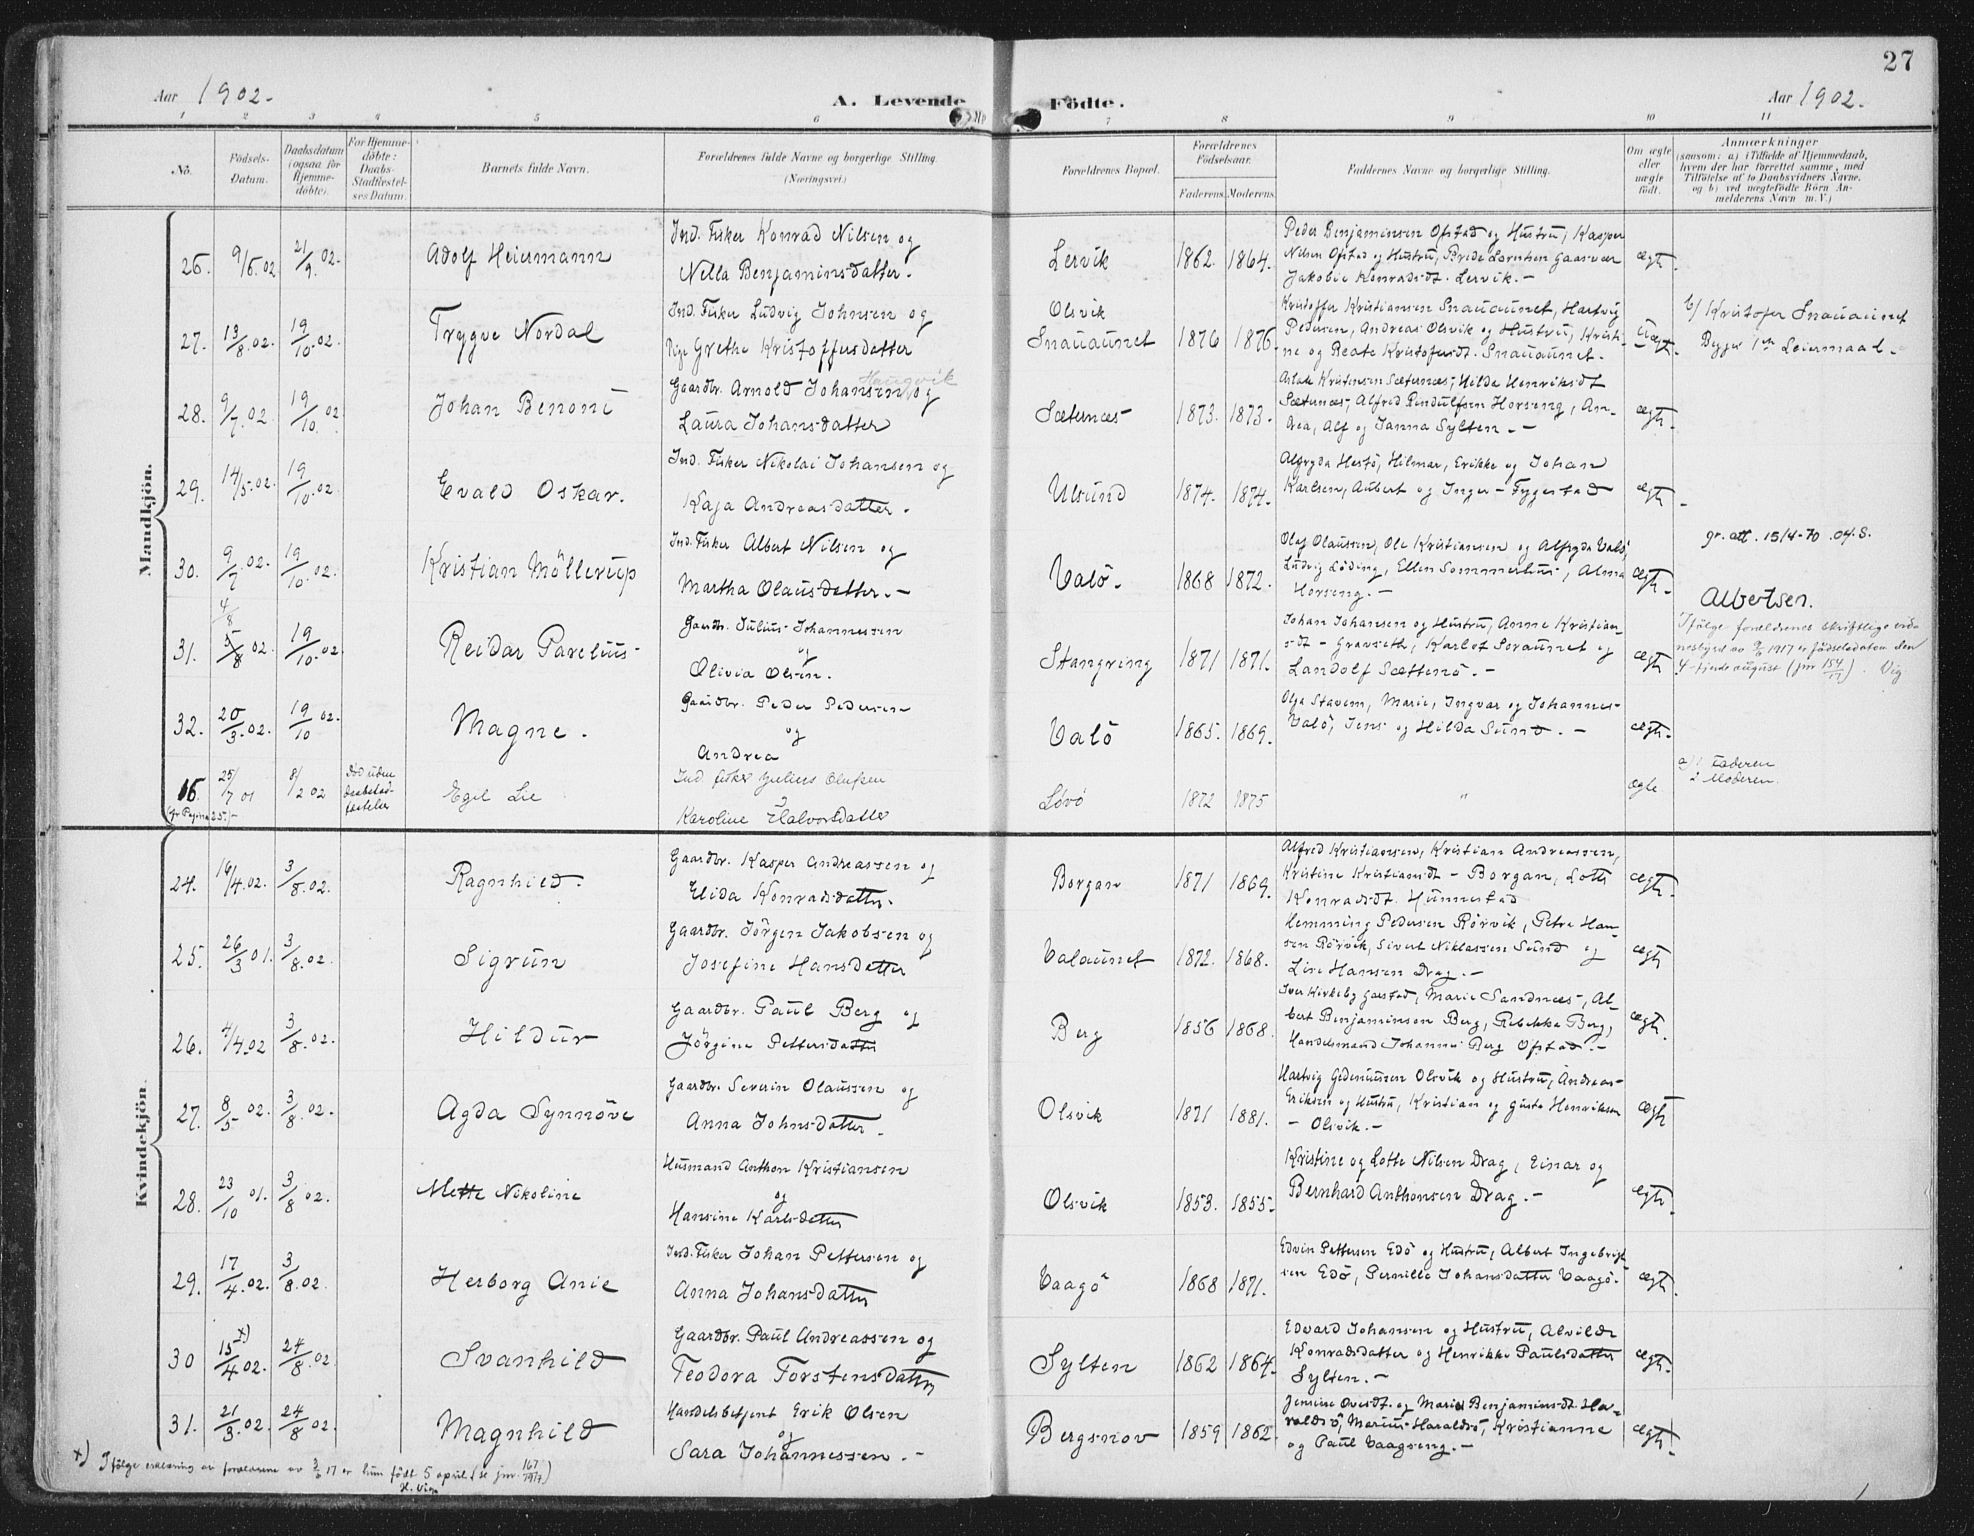 27
Aar 1902.
A. Levende Födte.
Aar 1902.
1 2 3 4 5 6 7 8 9 10 11
No.
Födsels-
Datum.
Daabsdatum
(ogsaa for
Hjemme-
döbte).
For Hjemme-
döbte:
Daabs-
Stadfæstel-
ses Datum.
Barnets fulde Navn.
Forældrenes fulde Navne og borgerlige Stilling.
(Næringsvei.)
Forældrenes Bopæl.
Forældrenes
Födselsaar.
Faderens. Moderens.
Faddernes Navne og borgerlige Stilling.
Om ægte
eller
uægte
födt.
Anmærkninger
(saasom: a) i Tilfælde af Hjemmedaab,
hvem der har forrettet samme, med
Tilföielse af to Daabsvidners Navne,
og b) ved uægtefödte Börn An-
melderens Navn m.V.)
Mandkjön.
26. 9/6 02. 21/9 02. Adolf Heiermann
Ind. Fisker Konrad Nilsen og
Nella Benjaminsdatter.
Lervik 1862. 1864.
Peder Benjaminsen Ofstad og Hustru, Kasper
Nilsen Ofstad og Hustru, Lorentsen Gaasvær
Jakobie Konradsdt. Lervik.-
ægte.
27. 13/8.02. 19/10.02. Trygve Nordal
Ind. Fisker Ludvig Johnsen og
Pige Grethe Kristoffersdatter
Olsvik
Snauaunet 1876 1876.
Kristoffer Kristiansen Snauaunet, Hartvig
Pedersen, Andreas Olsvik og Hustru, Kristi-
ne og Beate Kristofersdt. Snauaunet.
Uægte.
b/ Kristofer Snauaunet
Begges 1ste Leiermaal.
28. 9/7.02. 19/10.02 Johan Benoni
Haugvik
Gaardbr. Arnold Johansen og
Laura Johansdatter
Sæternes 1873. 1873.
Kristensen Sæternes, Hilda Henriksdt
Sæternes, Alfred Horseng, An-
drea, Alf og Janna Sylten.-
ægte.
29. 14/5.02. 19/10.02. Evald Oskar.
Ind. Fisker Nikolai Johansen og
Kaja Andreasdatter.
Ulsund 1874. 1874.
Alfryda Hestö, Hilmar, Erikke og Johan
Karlsen, Aubert og Inger - Fygestad
ægte.
30. 9/7.02. 19/10.02. Kristian Möllerup
Ind. Fisker Albert Nilsen og
Martha Olausdatter.-
Valö. 1868 1872.
Olaf Olaussen, Ole Kristiansen og Alfryda Valö,
Ludvig Löding, Ellen Sommerhus, Alma
Horseng.-
ægte.
gr. att. 15/4-70. O4.S.
Albertsen.
31. 4/8 5/8 02. 19/10.02. Reidar Parelius
Gaardbr. Julius Johannessen
og
Olivia Olsen.
Stangring 1871 1871.
Johan Johansen og Hustru, Anne Kristian-
sdt - Gravseth, Karlot Soraunet og
Landolf Sættenö.-
ægte
Ifölge forældrenes skriftlige vid-
nesbyrd av 1917 er födselsdatoen den
4-fjerde august (jnr 154/17). Vig
32. 20/3.02. 19/10 02. Magne.
Gaardbr. Peder Pedersen
og
Andrea
Valö 1865. 1869.
Olga Stavem, Marie, Ingvar og Johannes
Valö, Jens og Hilda Sund.-
ægte.
16. 25/7 01 8/2 02 död uden
daabstad-
fæstelse
Egil Lie
Ind. fisker Julius Olufsen
og
Karoline Halvorsdatter
Lövö 1872 1875 "
ægte
a) 1. Faderen
2 Moderen.
(fr. Pagina 25.)
Kvindekjön.
24. 16/4.02. 3/8.02. Ragnhild.
Gaardbr. Kasper Andreassen og
Elida Konradsdatter.
Borgan 1871 1869.
Alfred Kristiansen, Kristian Andreassen,
Kristine Kristiansdt - Borgan, Lotte
Konradsdt. Hunnestad
ægte.
25. 26/3 01. 3/8.02. Sigrun
Gaardbr. Jörgen Jakobsen og
Josefine Hansdatter
Valaunet 1872. 1868.
Hemming Pedersen Rörvik, Petra Han-
sen Rörvik, Sivert Niklassen Sund og
Lise Hansen Drag.-
ægte
26. 4/4.02 3/8.02. Hildur
Gaardbr. Paul Berg og
Jörgine Pettersdatter
Berg 1856 1868.
Iver Kirkeby Garstad, Marie Sandnæs, Al-
bert Benjaminsen Berg, Rebekka Berg,
Handelsmand Johannes Berg Ofstad.-
ægte.
27. 8/5 02. 3/8 02. Agda Synnöve
Gaardbr. Severin Olaussen og
Anna Johnsdatter.
Olsvik 1871 1881.
Hartvig Gideniussen Olsvik og Hustru, Andreas
Eriksen og Hustru, Kristian og Gusta Henriksen
- Olsvik.-
ægte
28. 23/10 01. 3/8 02. Mette Nikoline
Husmand Anthon Kristiansen
og
Hansine Karlsdatter
Olsvik 1853. 1855.
Kristine og Lotte Nilsen Drag, Einar og
Bernhard Anthonsen Drag.-
ægte.
29. 17/4.02. 3/8.02. Herborg Anie
Ind. Fisker Johan Pettersen og
Anna Johansdatter
Vaagö 1868 1871.
Edvin Pettersen Edö og Hustru, Albert Ingebrigt-
sen Edö, Pernille Johansdatter Vaagö.
ægte.
30 15/4 02. x) 24/8.02. Svanhild
Gaardbr. Paul Andreassen og
Teodora Torstensdatter
Sylten 1862 1864.
Edvard Johansen og Hustru, Alvilde
Konradsdatter og Henrikke Paulsdatter
Sylten.-
ægte.
31. 21/3.02. 24/8 02. Magnhild
Handelsbetjent Erik Olsen
og
Sara Johannessen.-
Bergsnov 1859 1862.
Jensine og Marie Benjaminsdt. Ha-
raldsö, Marius Haraldsö, Kristianne
og Paul Vaagseng.-
ægte.
x) Ifölge erklæring av forældrene av 17 er hun födt 5 april (se jnr. 167/1917)
H. Vig.